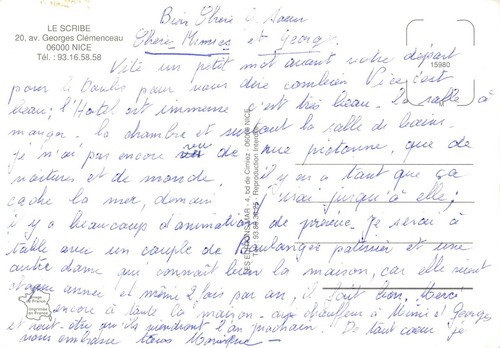 LE SCRIBE
20, av. Georges Clémenceau
06000 NICE
Tél. : 93.16.58.58
15980
Bien Chère Soeur
Chère Mimies et Georges
Vite un petit mot avant votre départ
pour le Doubs pour vous dire combien Nice c'est
beau; l'Hotel est immense c'est très beau. La salle à
manger. la chambre et surtout la salle de bains.
Je n'ai pas encore vu de rue piétonne, que de
voitures et de monde. il y en a tant que ça
cache la mer, demain j'irai jusqu'à elle;
il y a beaucoup d'animations de prévue. Je serai à
table avec un couple de Boulanger patissier et une
autre dame qui connaît bien la maison, car elle vient
chaque année et même 2 fois par an, il fait bon. Merci
encore à toute la maison - aux chauffeurs à Mimi et Georges
et peut-être qu'ils viendront l'an prochain. De tout coeur je
vous embrasse tous Monique
LES EDITIONS MAR - 4, bd de Cimiez - 06000 NICE
Reproduction Interdite
Image de France
Imprimé en France